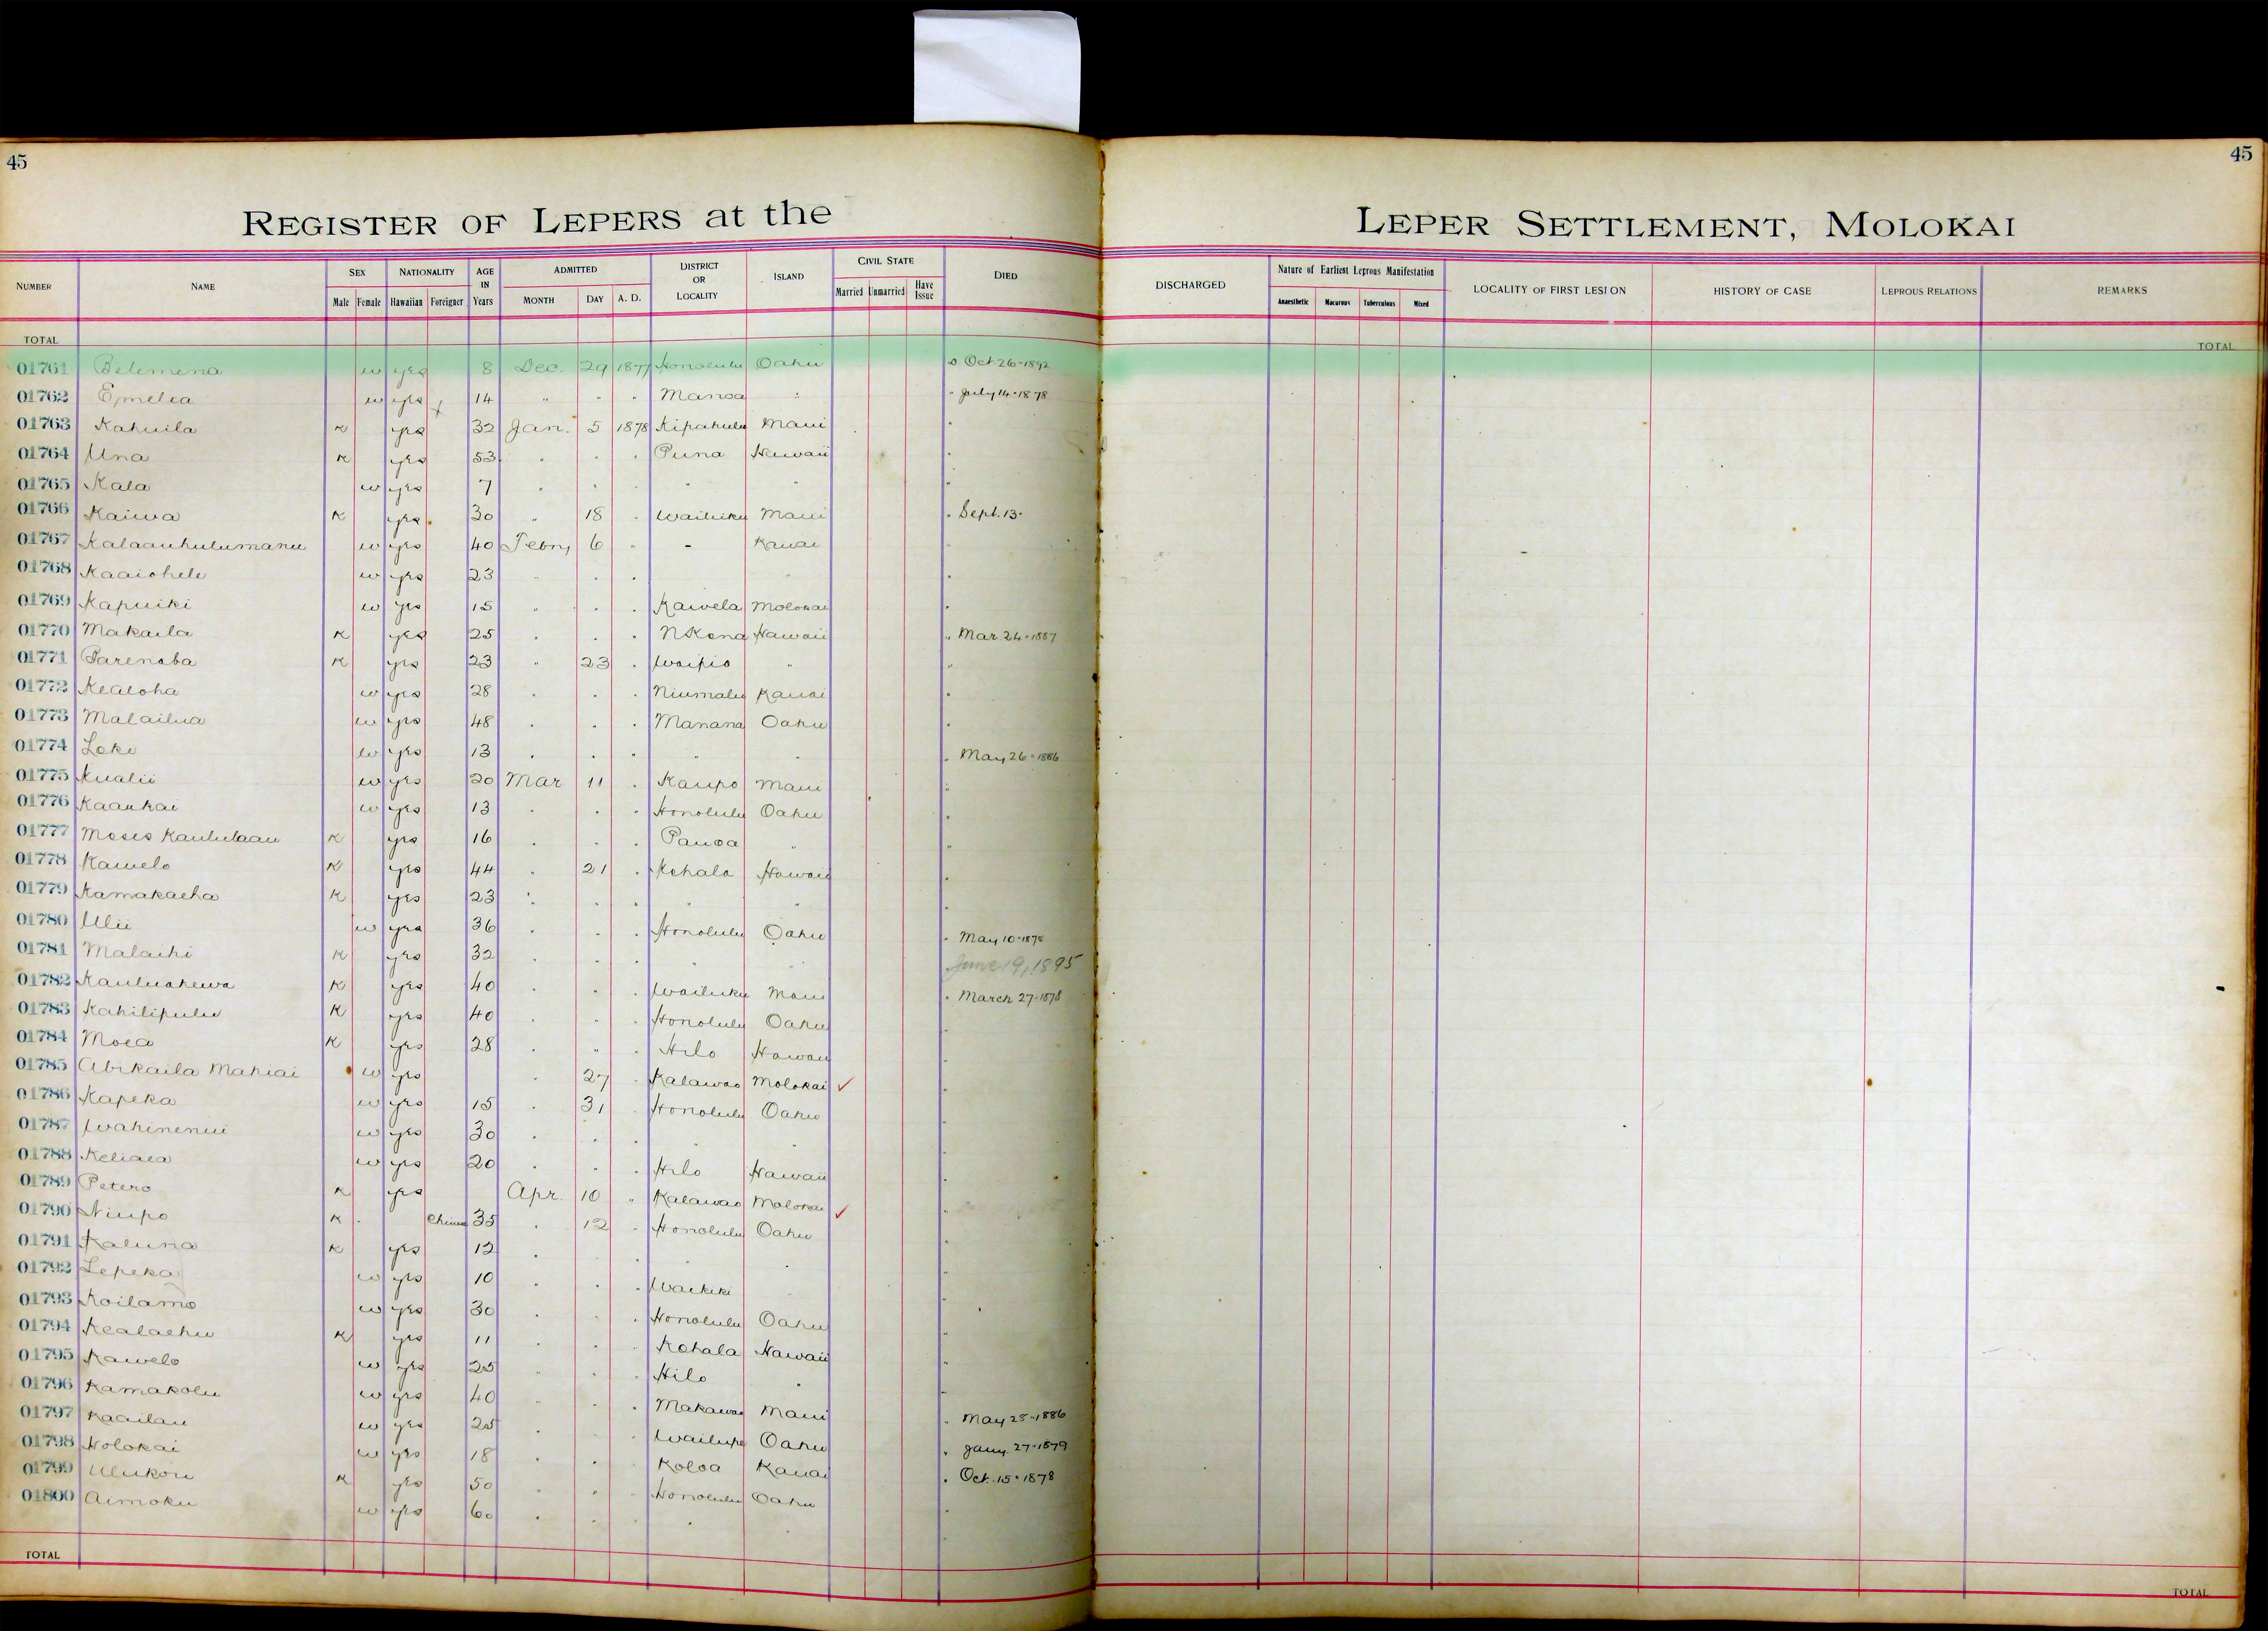 45
45
REGISTER OF LEPERS at the
LEPER SETTLEMENT, MOLOKAI
NUMBER NAME SEX Male Female NATIONALITY Hawaiian Foreigner AGE IN Years ADMITTED MONTH DAY A. D. DISTRICT OR LOCALITY ISLAND CIVIL STATE Married Unmarried Have Issue DIED
DISCHARGED Nature of Earliest Leprous Manifestation Anaesthetic Macurous Tuberculous Mixed LOCALITY OF FIRST LESION HISTORY OF CASE LEPROUS RELATIONS REMARKS
TOTAL
TOTAL
01761 Belemena w yes 8 Dec. 29 1877 Honolulu Oahu D. Oct 26-1892
01762 Emelia w yes 14 " " " Manoa " " July 14-1878
01763 Kahuila K yes 32 Jan. 5 1878 Kipahulu Maui "
01764 Una K yes 53 " " " Puna Hawaii "
01765 Kala w yes 7 " " " " " "
01766 Kaiwa K yes 30 " 18 " Wailuku Maui " Sept. 13-
01767 Kalaauhulumanu w yes 40 Febry 6 " - Kauai "
01768 Kaaiohele w yes 23 " " " " "
01769 Kapuiki w yes 15 " " " Kawela Molokai "
01770 Makaila K yes 25 " " " N Kona Hawaii " Mar 24-1887
01771 Parenaba K yes 23 " 23 " Waipio " "
01772 Kealoha w yes 28 " " " Niumalu Kauai "
01773 Malailua w yes 48 " " " Manana Oahu "
01774 Loke w yes 13 " " " " " " May 26-1886
01775 Kualii w yes 20 Mar 11 " Kaupo Maui "
01776 Kaaukai w yes 13 " " " Honolulu Oahu "
01777 Moses Kaululaau K yes 16 " " " Pauoa " "
01778 Kawelo K yes 44 " 21 " Kohala Hawaii "
01779 Kamakaeha K yes 23 " " " " " "
01780 Ulii w yes 36 " " " Honolulu Oahu " May 10-1878
01781 Malaihi K yes 32 " " " " " June 19, 1895
01782 Kauluahewa K yes 40 " " " Wailuku Maui " March 27-1878
01783 Kahilipulu K yes 40 " " " Honolulu Oahu "
01784 Moea K yes 28 " " " Hilo Hawaii "
01785 Abikaila Mahiai w yes " 27 " Kalawao Molokai ✓ "
01786 Kapeka w yes 15 " 31 " Honolulu Oahu "
01787 Wahinenui w yes 30 " " " " " "
01788 Keliaea w yes 20 " " " Hilo Hawaii "
01789 Petero K yes Apr. 10 " Kalawao Molokai ✓ "
01790 Niupo K Chinese 35 " 12 " Honolulu Oahu "
01791 Kaluna K yes 12 " " " " " "
01792 Lepeka w yes 10 " " " Waikiki " "
01793 Koilamo w yes 30 " " " Honolulu Oahu "
01794 Kealaehu K yes 11 " " " Kohala Hawaii "
01795 Kawelo w yes 25 " " " Hilo " "
01796 Kamakolu w yes 40 " " " Makawao Maui " May 25-1886
01797 Kaailau w yes 25 " " " Wailupe Oahu " Jany. 27-1879
01798 Holokai w yes 18 " " " Koloa Kauai " Oct. 15-1878
01799 Ulukou K yes 50 " " " Honolulu Oahu "
01800 Aimoku w yes 60 " " " " " "
TOTAL
TOTAL